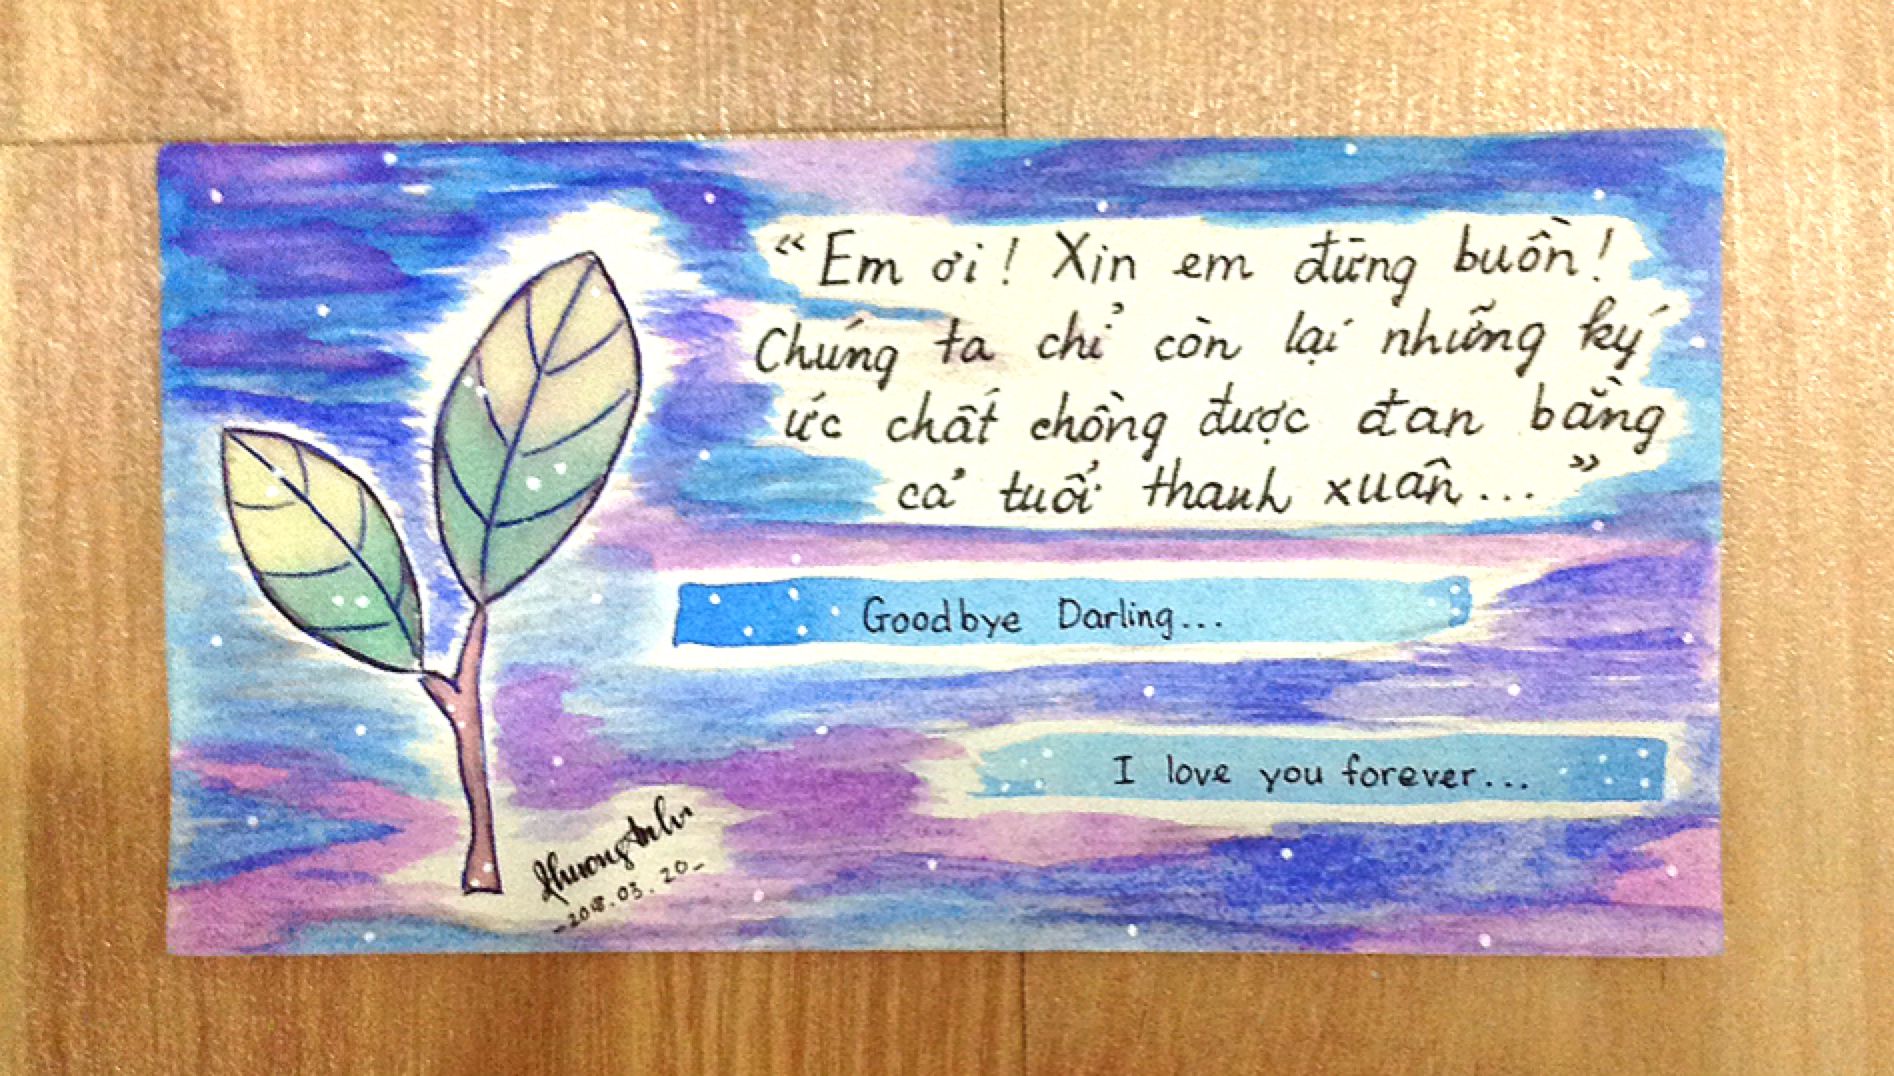 “Em ơi! Xin em đừng buồn!
Chúng ta chỉ còn lại những ký
ức chất chồng được đan bằng
cả tuổi thanh xuân...”
Goodbye Darling...
I love you forever...